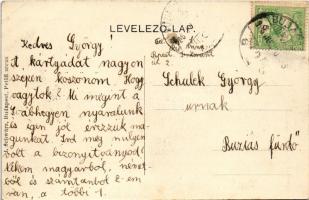 LEVELEZŐ-LAP.
Kedves György
A kártyádat nagyon
szépen köszönöm Hogy
vagytok? Mi megint a
Svábhegyen nyaralunk
és igen jól érezzük ma-
gunkat. Ird meg milyen
volt a bizonyitványod
magyarból, német-
ből és számtanból 2-em
van, a többi 1.
Schulek György
urnak
Buziás fürdő